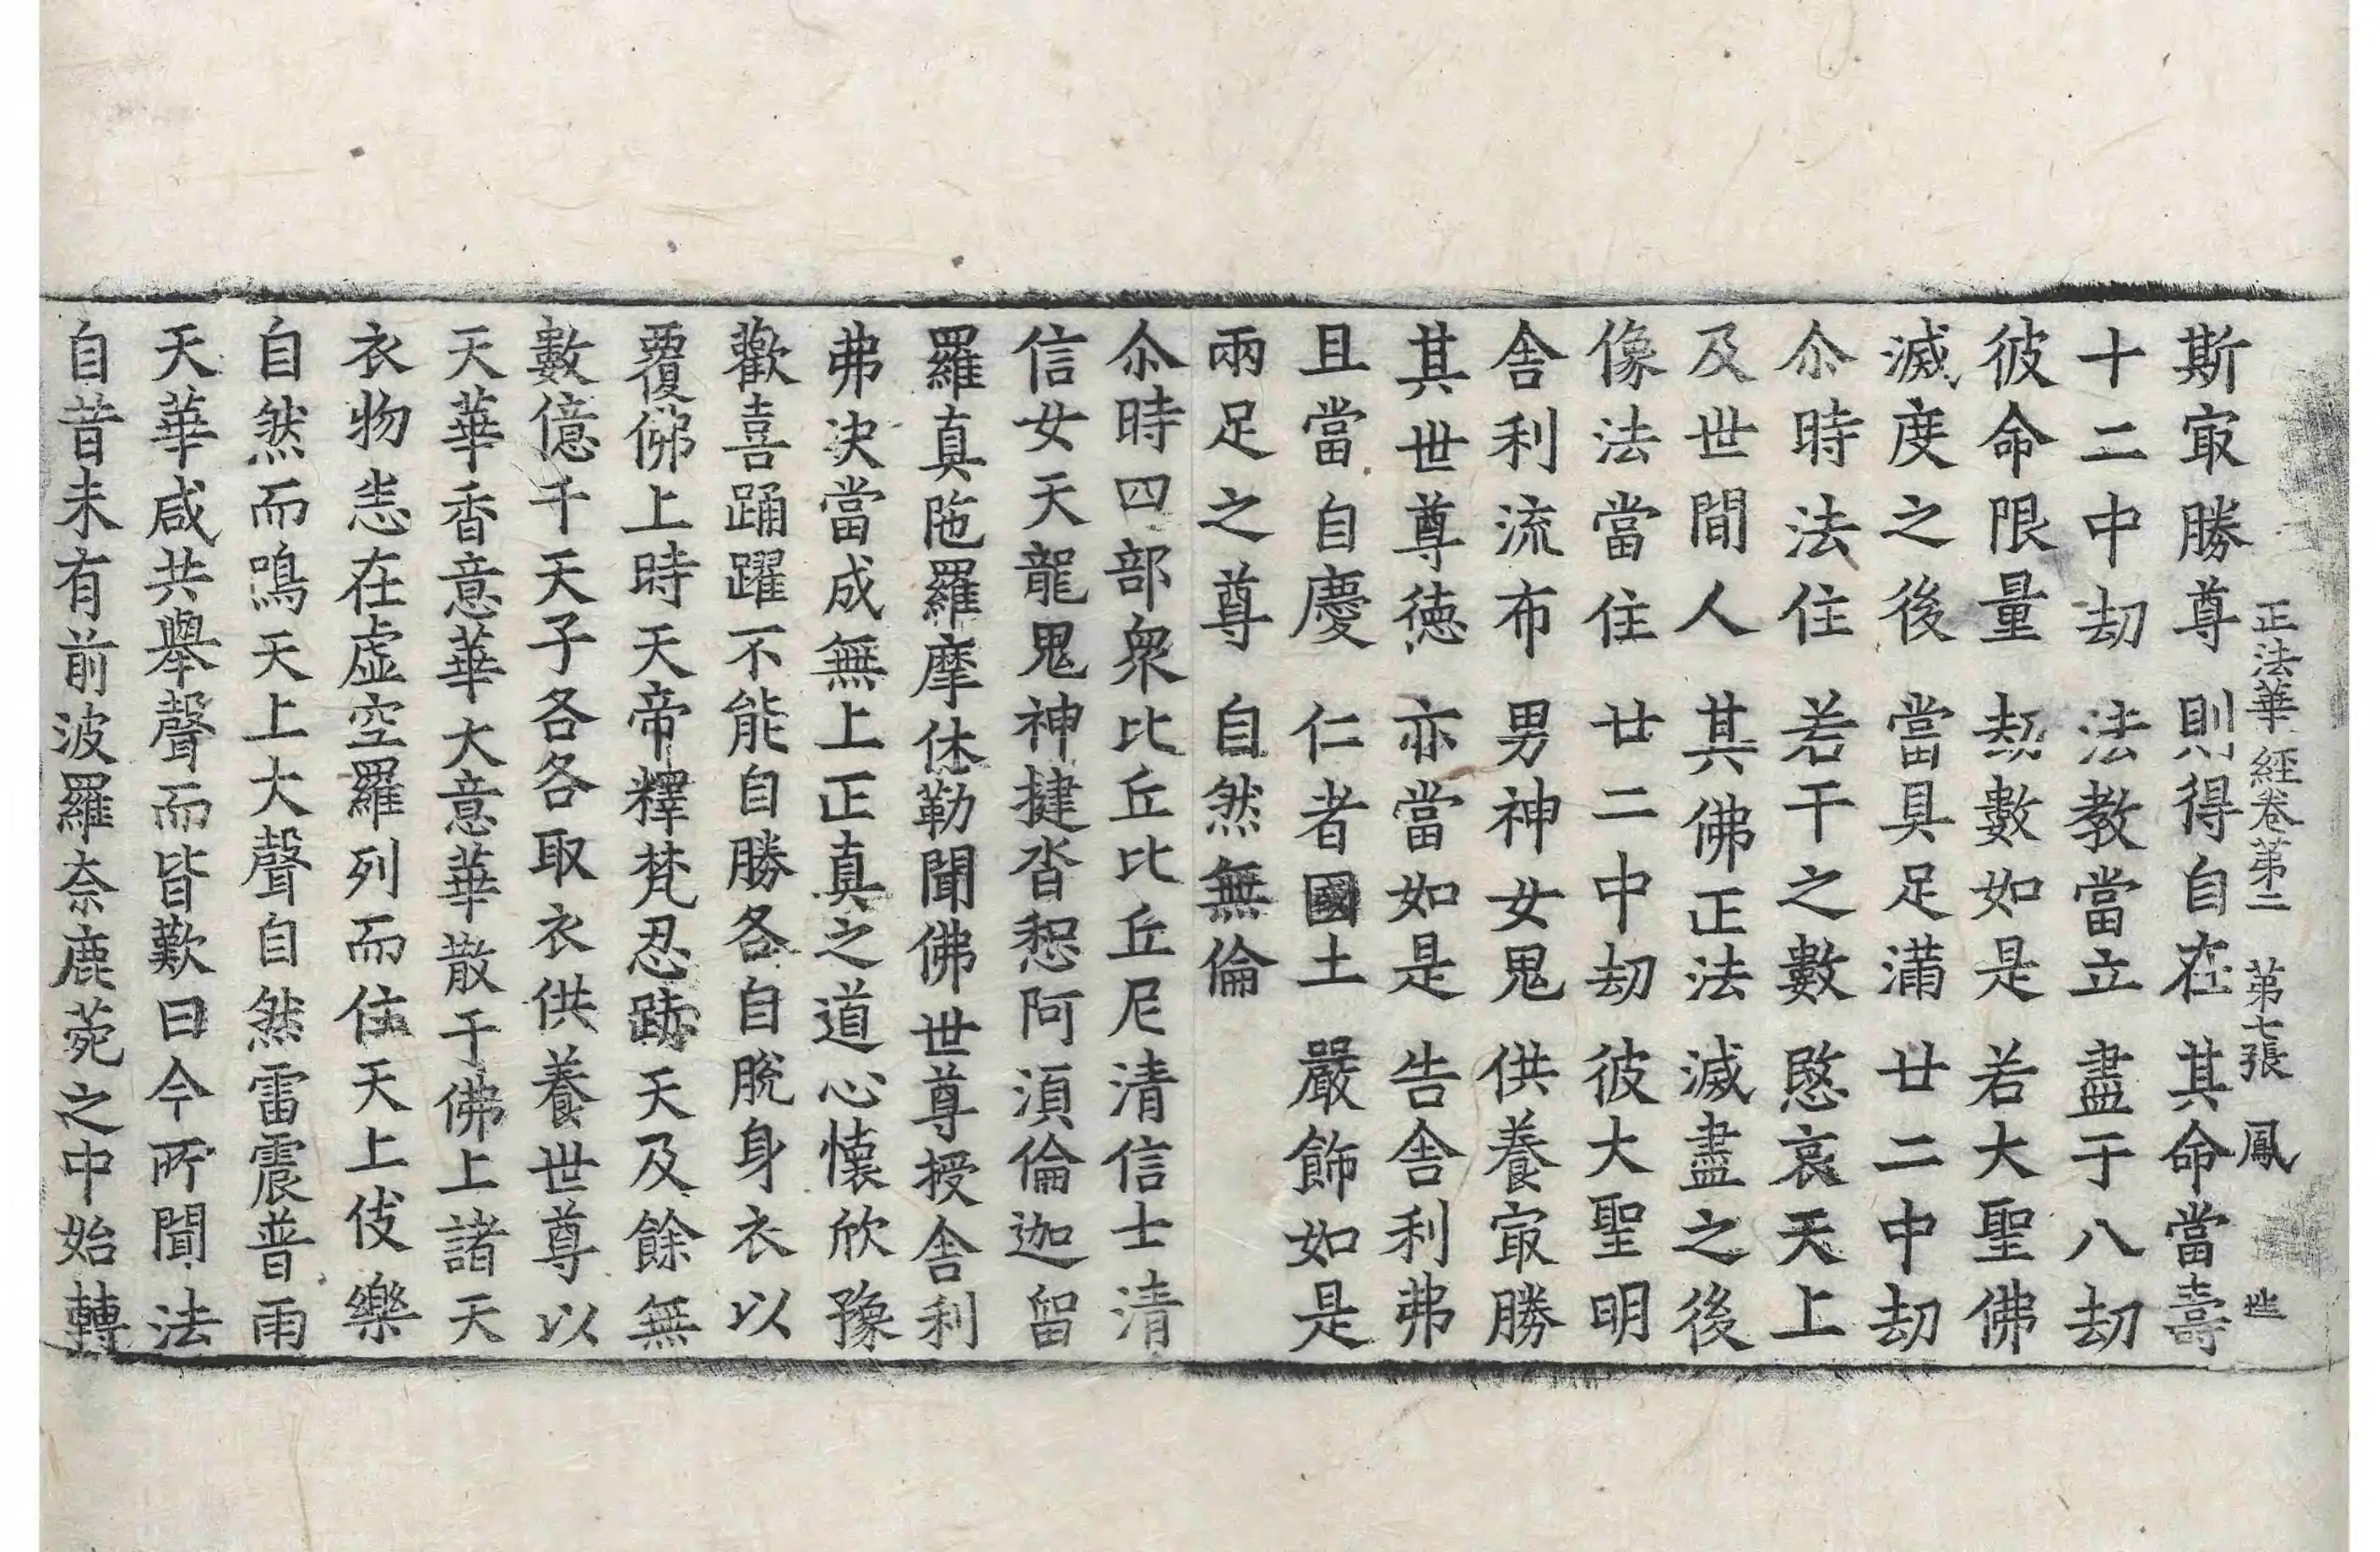 正法華經卷第二 第七張 鳳
斯㝡勝尊 則得自在 其命當壽
十二中劫 法教當立 盡于八劫
彼命限量 劫數如是 若大聖佛
滅度之後 當具足滿 廿二中劫
尒時法住 若干之數 愍哀天上
及世間人 其佛正法 滅盡之後
像法當住 廿二中劫 彼大聖明
舍利流布 男神女鬼 供養㝡勝
其世尊德 亦當如是 告舍利弗
且當自慶 仁者國土 嚴飾如是
兩足之尊 自然無倫
尒時四部衆比丘比丘尼清信士清
信女天龍鬼神揵沓惒阿須倫迦留
羅真陁羅摩休勒聞佛世尊授舍利
弗決當成無上正真之道心懷欣豫
歡喜踊躍不能自勝各自脫身衣以
覆佛上時天帝釋梵忍跡天及餘無
數億千天子各各取衣供養世尊以
天華香意華大意華散于佛上諸天
衣物恙在虛空羅列而住天上伎樂
自然而鳴天上大聲自然雷震普雨
天華咸共舉聲而皆歎曰今所聞法
自昔未有前波羅奈鹿菀之中始轉